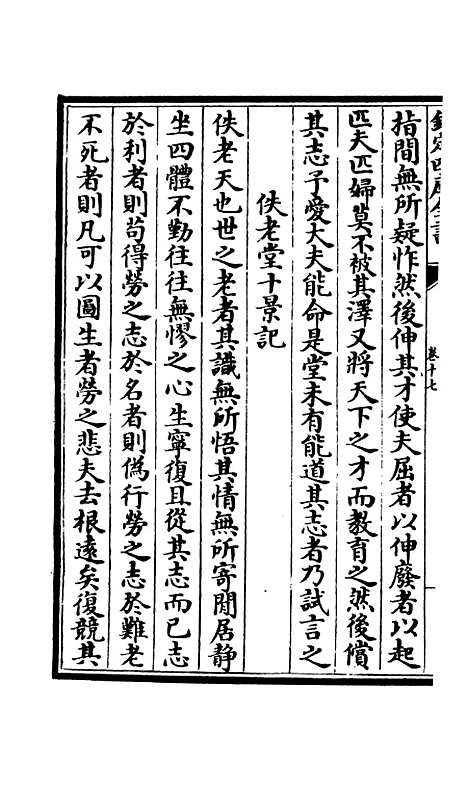 欽定四庫全書
卷十七
指間無所疑怍然後伸其才使夫屈者以伸廢者以起
匹夫匹婦莫不被其澤又將天下之才而教育之然後償
其志予愛大夫能命是堂未有能道其志者乃試言之
佚老堂十景記
佚老天也世之老者其識無所悟其情無所寄閒居静
坐四體不勤往往無憀之心生寧復且從其志而已志
於利者則苟得勞之志於名者則偽行勞之志於難老
不死者則凡可以圖生者勞之悲夫去根遠矣復競其